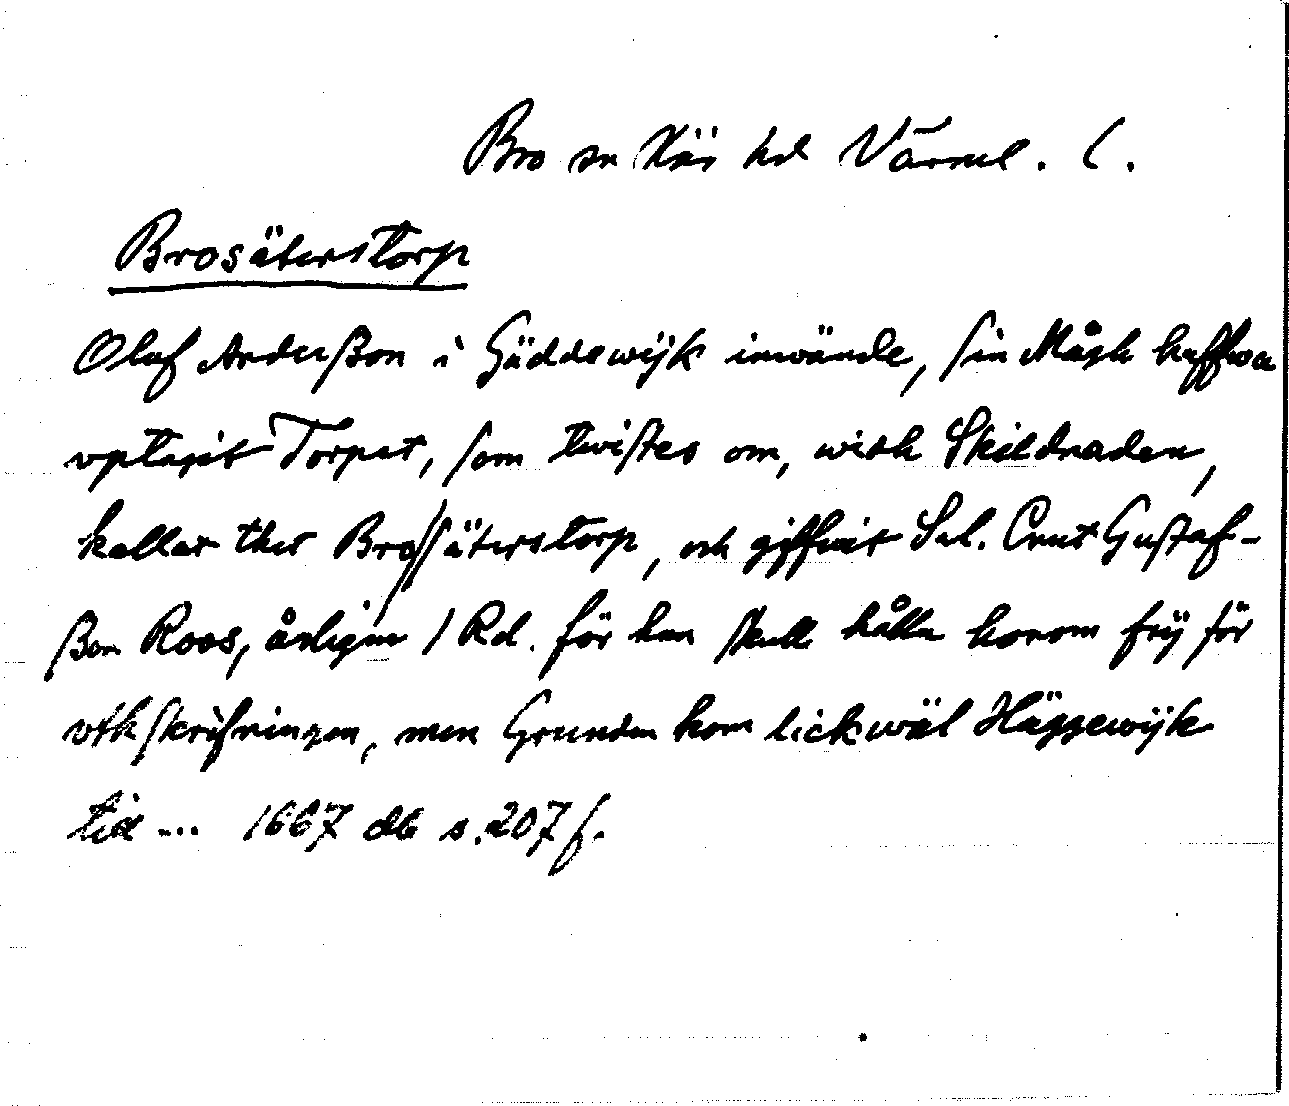 Bro sn Näs hd Värml. l.
Brosäterstorp
Oluf Anderßon i Gäddewijk inwände, sin Mågh haffwa
vptagit Torpet, som twistes om, widh Skildnaden,
kallar thet Brossäterstorp, och giffwit Sal. Cnut Gustaf-
ßon Roos, årligen 1 Rd. för han skull hålla honom frij för
vthskrifningen, men Grunden kom lickwäl Häggewijk
till ... 1667 db s. 207 f.